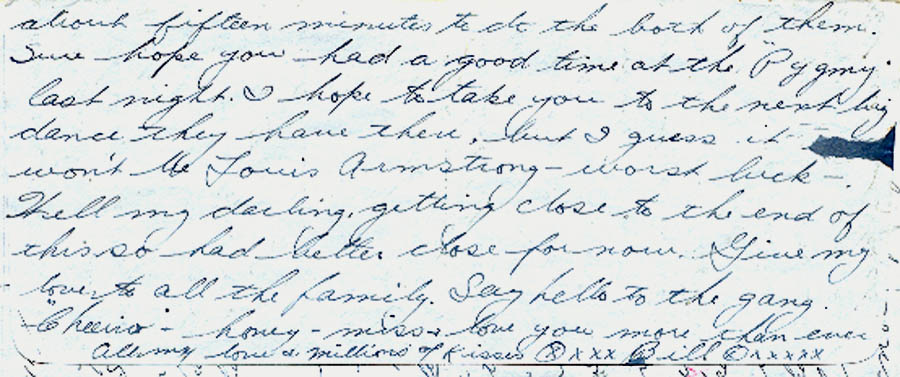 about fifteen minutes to do the both of them.
Sure hope you had a good time at the "Pygmy"
last night. I hope to take you to the next big
dance they have there, but I guess it
won't be Louis Armstrong - worst luck -.
Well my darling, getting close to the end of
this so had better close for now. Give my
love to all the family. Say hello to the gang
"Cheerio" - honey - miss & love you more than ever
All my love & millions of kisses ⓧ x x x Bill ⓧ x x x x x